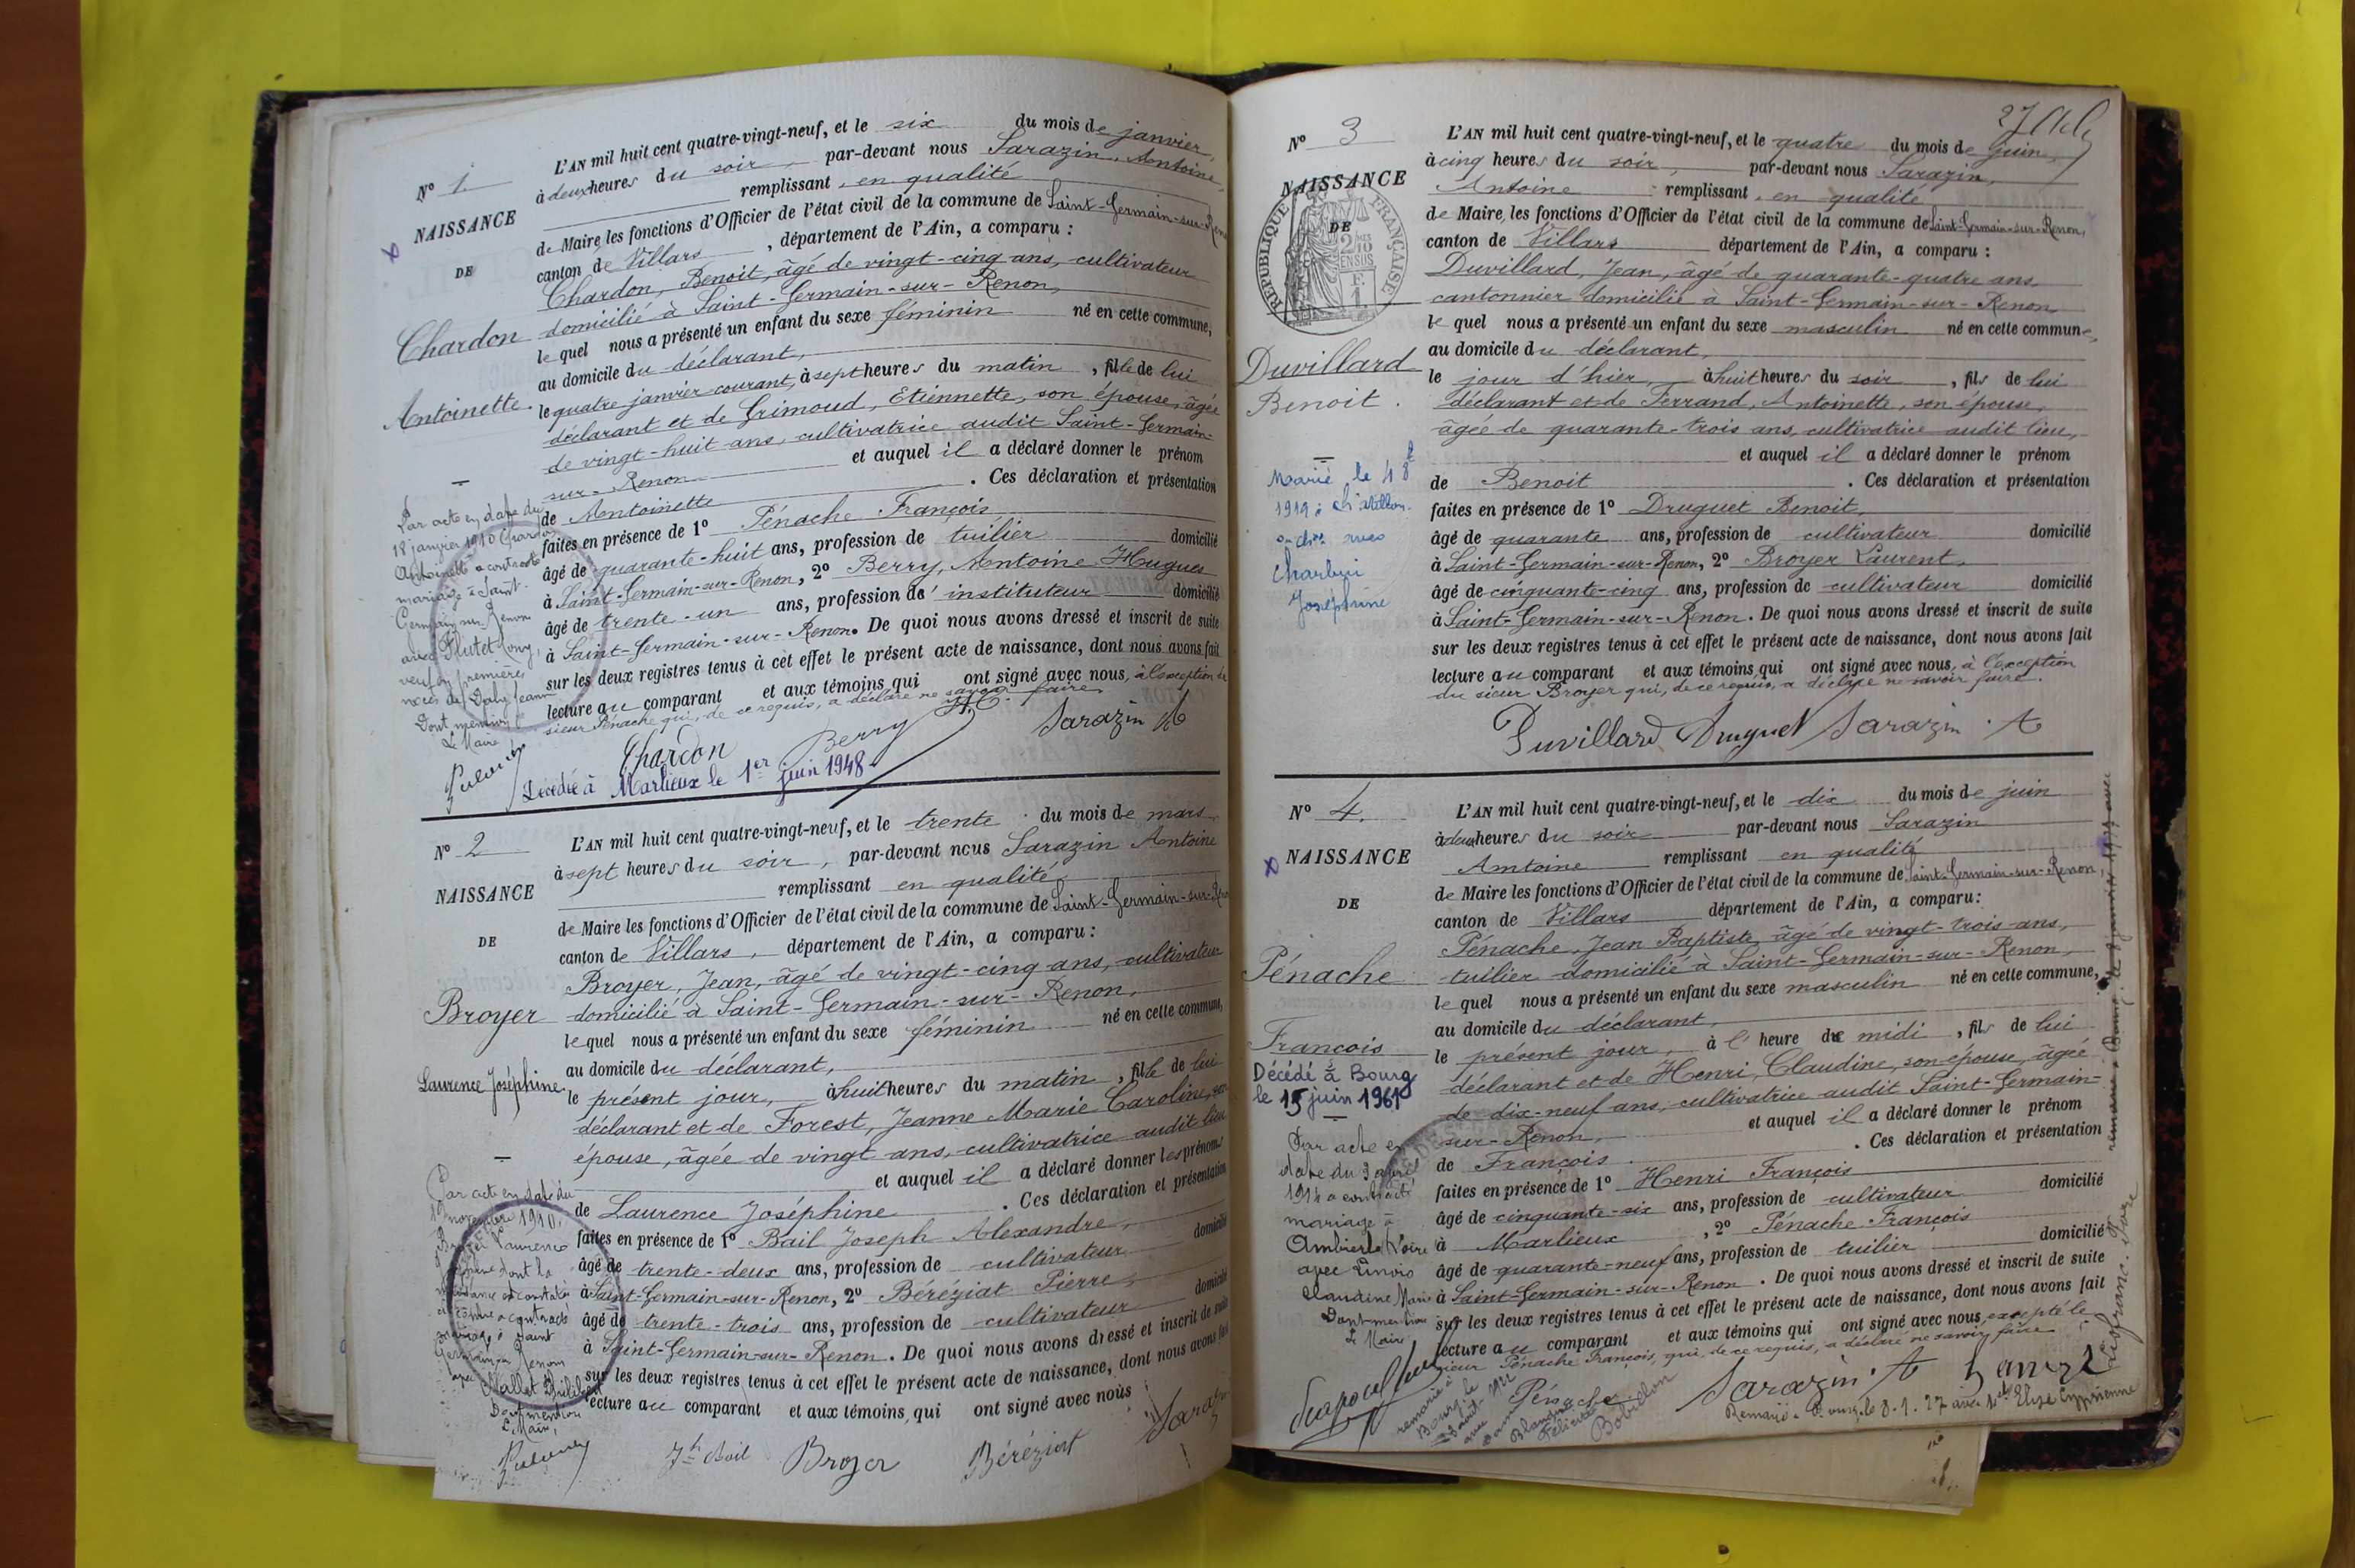 Nº 1.
NAISSANCE
DE
Chardon
Antoinette.
L'AN mil huit cent quatre-vingt-neuf, et le six du mois de janvier,
à deux heures du soir, par-devant nous Sarazin, Antoine,
remplissant, en qualité
de Maire, les fonctions d'Officier de l'état civil de la commune de Saint-Germain-sur-Renon
canton de Villars, département de l'Ain, a comparu :
Chardon, Benoit, âgé de vingt-cinq ans, cultivateur
domicilié à Saint-Germain-sur-Renon,
lequel nous a présenté un enfant du sexe féminin né en cette commune,
au domicile du déclarant,
le quatre janvier courant, à sept heures du matin, fille de lui
déclarant et de Grimoud, Etiennette, son épouse, âgée
de vingt-huit ans, cultivatrice audit Saint-Germain-
sur-Renon et auquel il a déclaré donner le prénom
de Antoinette. Ces déclaration et présentation
faites en présence de 1º Pénache François,
âgé de quarante-huit ans, profession de tuilier domicilié
à Saint-Germain-sur-Renon, 2º Berry, Antoine Hugues
âgé de trente-un ans, profession de instituteur domicilié
à Saint-Germain-sur-Renon. De quoi nous avons dressé et inscrit de suite
sur les deux registres tenus à cet effet le présent acte de naissance, dont nous avons fait
lecture au comparant et aux témoins qui ont signé avec nous, à l'exception du
sieur Pénache qui, de ce requis, a déclaré ne savoir faire.
Chardon Berry Sarazin A
Décédée à Marlieux le 1er juin 1948
Par acte en date du
18 janvier 1910 Chardon
Antoinette a contracté
mariage à Saint-
Germain sur Renon
avec Flutet
veuf en premières
noces de Daly Jeanne
Dont mention
Le Maire
Nº 2
NAISSANCE
DE
Broyer
Laurence Joséphine
L'AN mil huit cent quatre-vingt-neuf, et le trente du mois de mars
à sept heures du soir, par-devant nous Sarazin Antoine
remplissant en qualité
de Maire les fonctions d'Officier de l'état civil de la commune de Saint-Germain-sur-Renon
canton de Villars, département de l'Ain, a comparu :
Broyer, Jean, âgé de vingt-cinq ans, cultivateur
domicilié à Saint-Germain-sur-Renon,
lequel nous a présenté un enfant du sexe féminin né en cette commune,
au domicile du déclarant,
le présent jour, à huit heures du matin, fille de lui
déclarant et de Forest, Jeanne Marie Caroline, son
épouse, âgée de vingt ans, cultivatrice audit lieu
et auquel il a déclaré donner les prénoms
de Laurence Joséphine. Ces déclaration et présentation
faites en présence de 1º Bail Joseph Alexandre,
âgé de trente-deux ans, profession de cultivateur domicilié
à Saint-Germain-sur-Renon, 2º Béréziat Pierre,
âgé de trente-trois ans, profession de cultivateur domicilié
à Saint-Germain-sur-Renon. De quoi nous avons dressé et inscrit de suite
sur les deux registres tenus à cet effet le présent acte de naissance, dont nous avons fait
lecture au comparant et aux témoins qui ont signé avec nous
Jh Bail Broyer Béréziat Sarazin
Par acte en date du
novembre 1910,
Broyer Laurence
dont la
naissance est constatée
ci contre a contracté
mariage à Saint
Germain sur Renon
avec Mallet Philibert
Dont mention
Le Maire,
27 Acte
Nº 3
NAISSANCE
DE
RÉPUBLIQUE FRANÇAISE
Duvillard
Benoit.
L'AN mil huit cent quatre-vingt-neuf, et le quatre du mois de juin,
à cinq heures du soir, par-devant nous Sarazin,
Antoine remplissant, en qualité
de Maire, les fonctions d'Officier de l'état civil de la commune de Saint-Germain-sur-Renon,
canton de Villars département de l'Ain, a comparu :
Duvillard, Jean, âgé de quarante-quatre ans,
cantonnier domicilié à Saint-Germain-sur-Renon
lequel nous a présenté un enfant du sexe masculin né en cette commune,
au domicile du déclarant,
le jour d'hier, à huit heures du soir, fils de lui
déclarant et de Ferrand, Antoinette, son épouse,
âgée de quarante-trois ans, cultivatrice audit lieu,
et auquel il a déclaré donner le prénom
de Benoit. Ces déclaration et présentation
faites en présence de 1º Druguet Benoit,
âgé de quarante ans, profession de cultivateur domicilié
à Saint-Germain-sur-Renon, 2º Broyer Laurent,
âgé de cinquante-cinq ans, profession de cultivateur domicilié
à Saint-Germain-sur-Renon. De quoi nous avons dressé et inscrit de suite
sur les deux registres tenus à cet effet le présent acte de naissance, dont nous avons fait
lecture au comparant et aux témoins qui ont signé avec nous, à l'exception
du sieur Broyer qui, de ce requis, a déclaré ne savoir faire.
Duvillard Druguet Sarazin A
Marié le
1919 à Châtillon-
avec
Charbui
Joséphine
Nº 4.
NAISSANCE
DE
Pénache
François
L'AN mil huit cent quatre-vingt-neuf, et le dix du mois de juin
à deux heures du soir par-devant nous Sarazin
Antoine remplissant en qualité
de Maire les fonctions d'Officier de l'état civil de la commune de Saint-Germain-sur-Renon,
canton de Villars département de l'Ain, a comparu :
Pénache, Jean Baptiste âgé de vingt-trois ans,
tuilier domicilié à Saint-Germain-sur-Renon,
lequel nous a présenté un enfant du sexe masculin né en cette commune,
au domicile du déclarant,
le présent jour, à l'heure de midi, fils de lui
déclarant et de Henri, Claudine, son épouse, âgée
de dix-neuf ans, cultivatrice audit Saint-Germain-
sur-Renon, et auquel il a déclaré donner le prénom
de François. Ces déclaration et présentation
faites en présence de 1º Henri François
âgé de cinquante-six ans, profession de cultivateur domicilié
à Marlieux, 2º Pénache François
âgé de quarante-neuf ans, profession de tuilier domicilié
à Saint-Germain-sur-Renon. De quoi nous avons dressé et inscrit de suite
sur les deux registres tenus à cet effet le présent acte de naissance, dont nous avons fait
lecture au comparant et aux témoins qui ont signé avec nous, excepté le
sieur Pénache François, qui, de ce requis, a déclaré ne savoir faire
Pénache Sarazin A
Décédé à Bourg
le 15 juin 1961
Par acte en
date du 3 avril
1914 a contracté
mariage à
Ambierle Loire
avec Linois
Claudine Marie
Dont mention
Le Maire
remarié à
Bourg le
1922
avec
Blandine
Félicité
Bobillon
Remarié à Bourg le 8.1.27 avec Elise Cyprienne